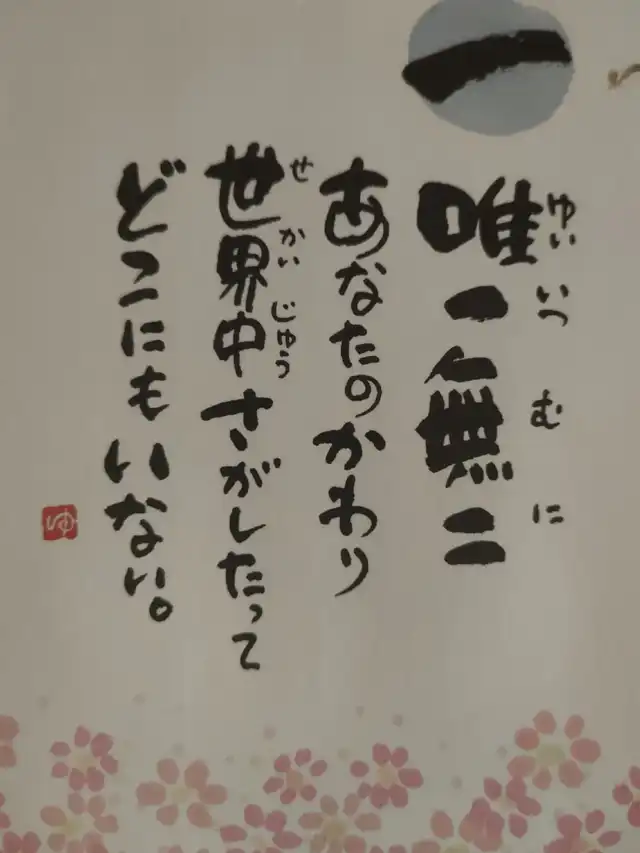 一
唯一無二
ゆいいつむに
あなたのかわり
世界中さがしたって
せかいじゅう
どこにもいない。
ゆ